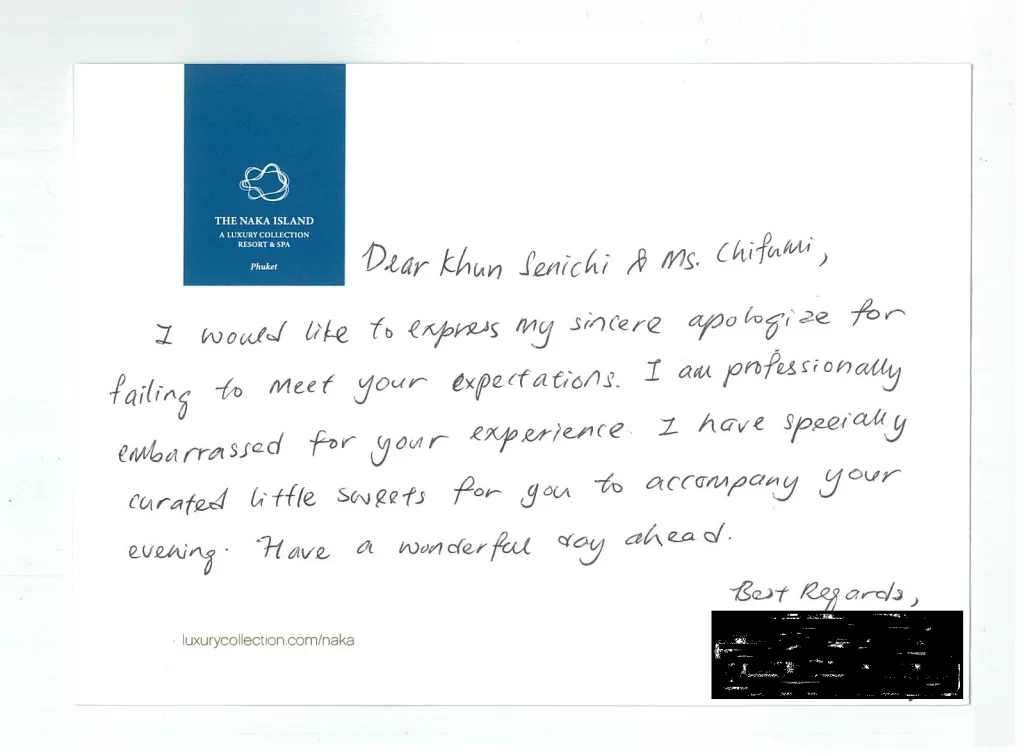 THE NAKA ISLAND
A LUXURY COLLECTION
RESORT & SPA
Phuket
Dear Khun Senichi & Ms. Chifumi,
I would like to express my sincere apologize for
failing to meet your expectations. I am professionally
embarrassed for your experience. I have specially
curated little sweets for you to accompany your
evening. Have a wonderful day ahead.
Best Regards,
luxurycollection.com/naka